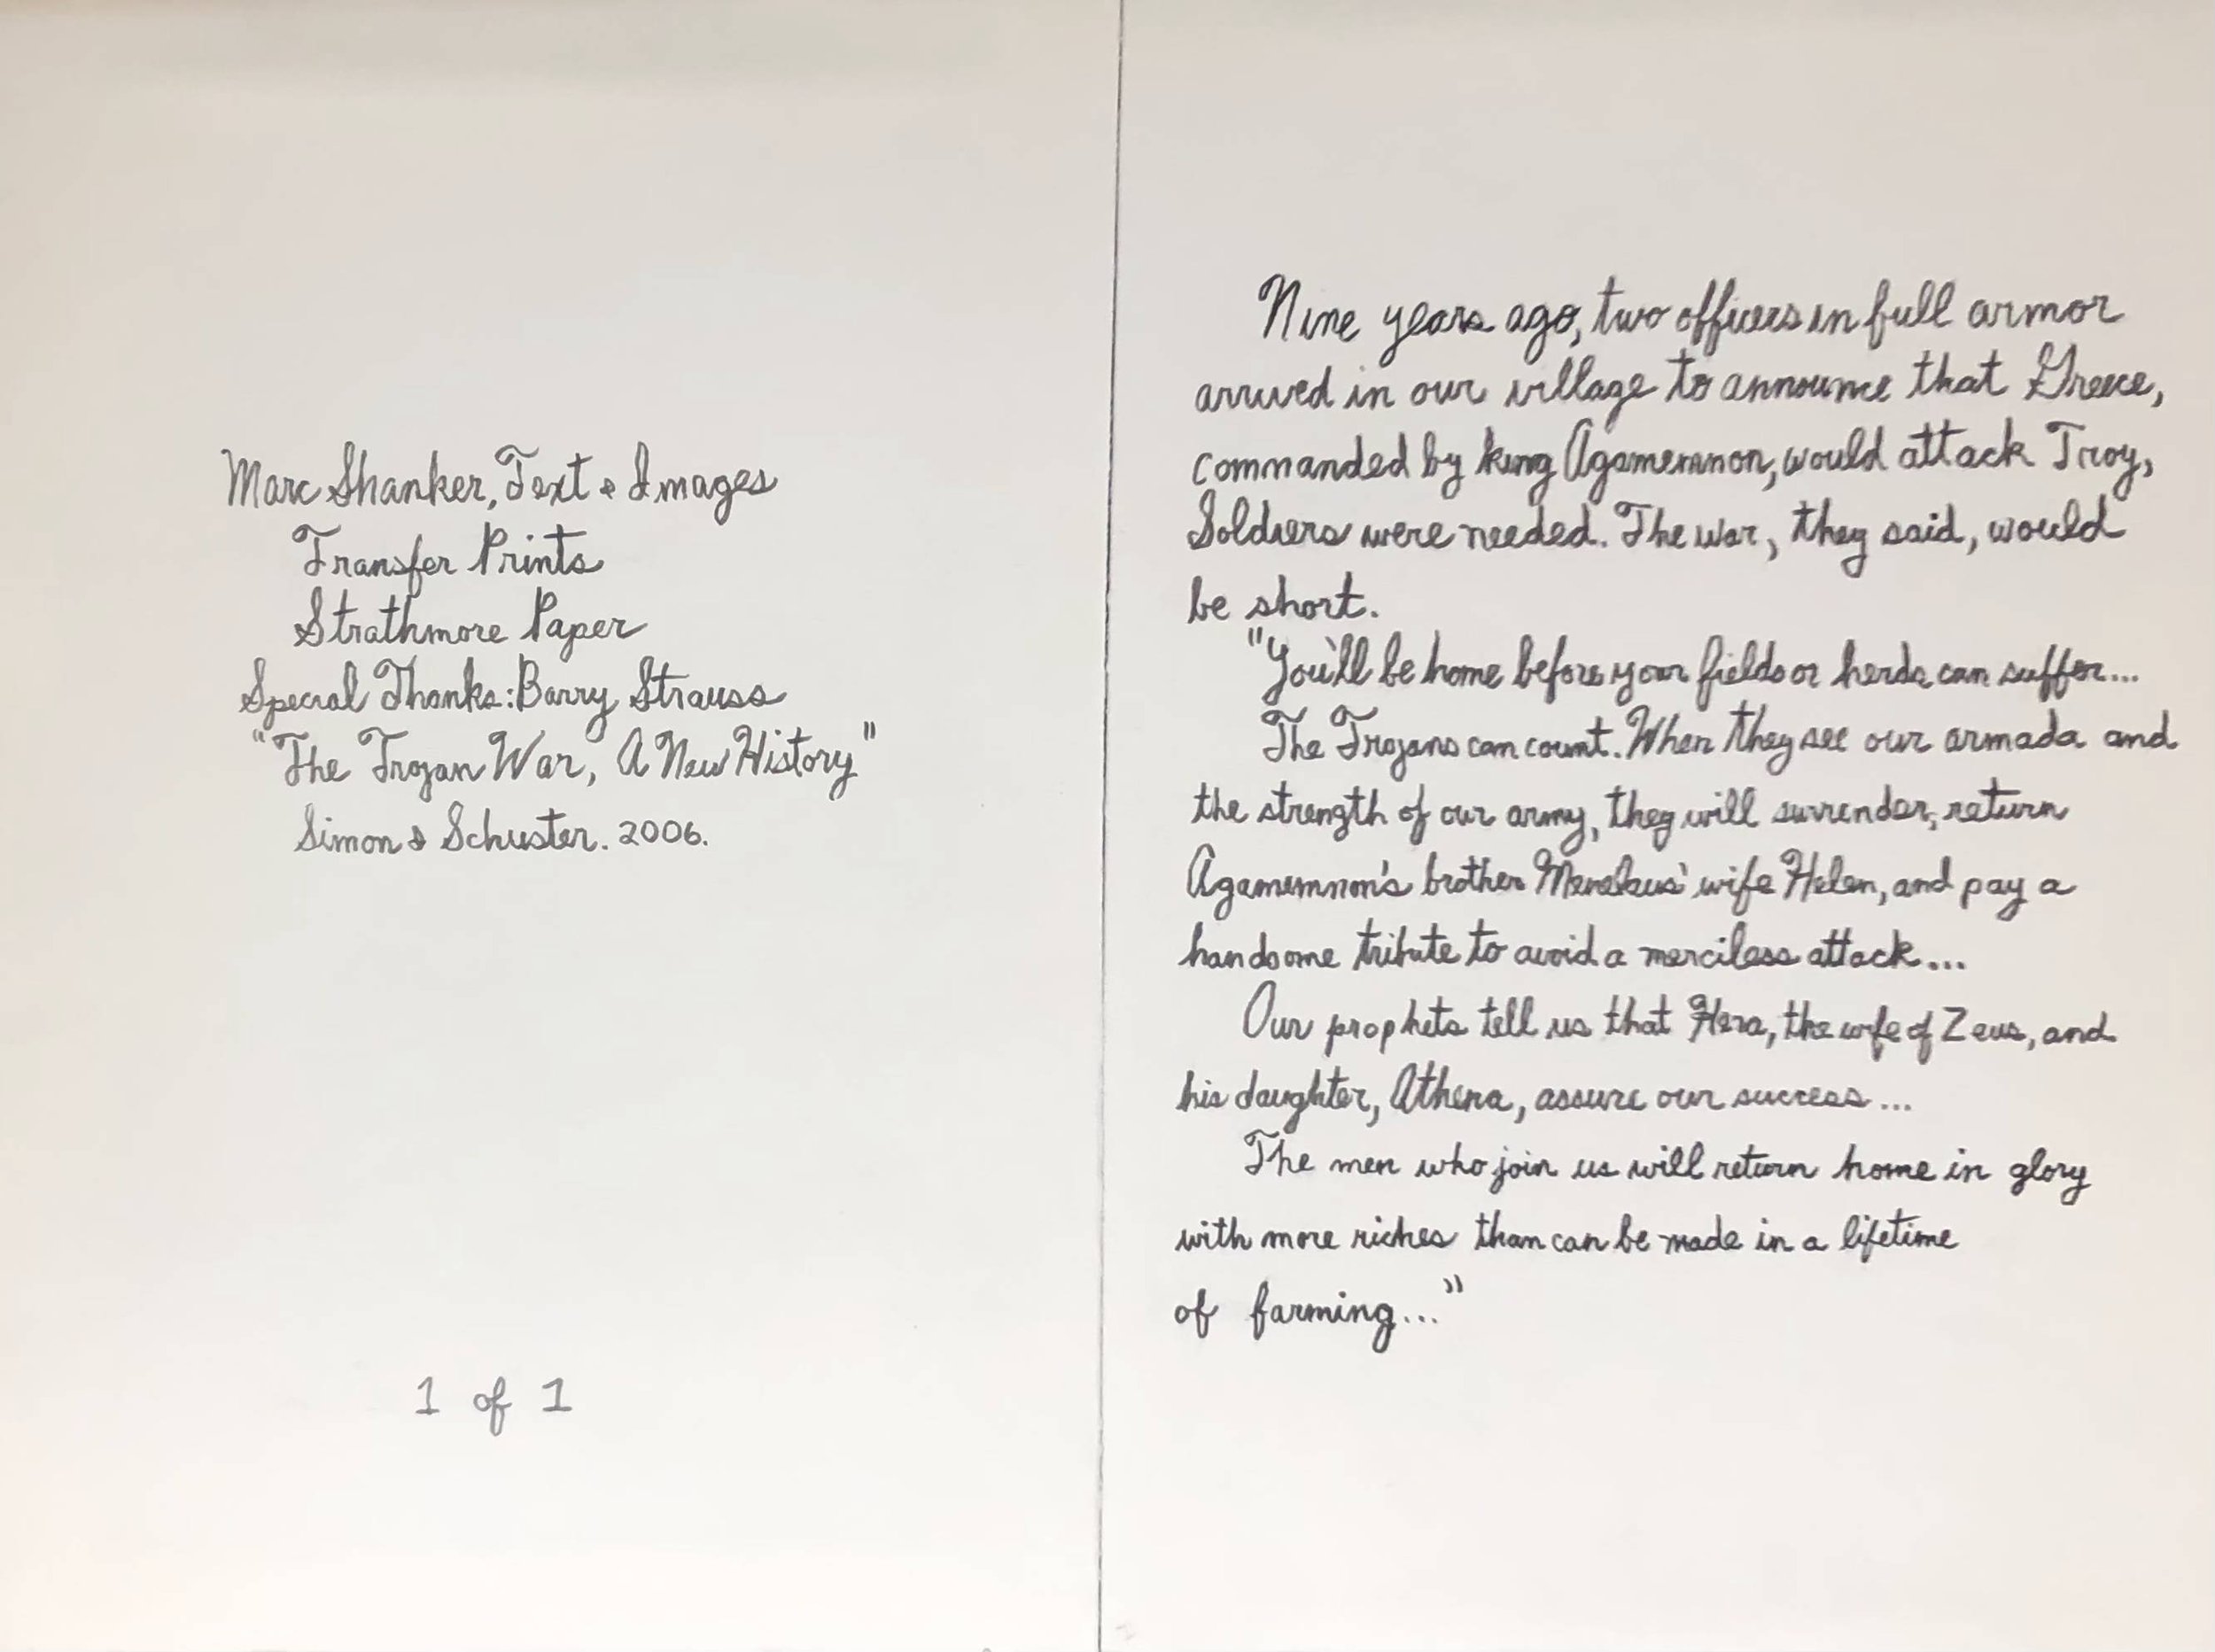 Marc Shanker, Text & Images
Transfer Prints
Strathmore Paper
Special Thanks: Barry Strauss
"The Trojan War, A New History"
Simon & Schuster. 2006.
1 of 1
Nine years ago, two officers in full armor
arrived in our village to announce that Greece,
commanded by king Agamemnon, would attack Troy,
Soldiers were needed. The war, they said, would
be short.
"You'll be home before your fields or herds can suffer...
The Trojans can count. When they see our armada and
the strength of our army, they will surrender, return
Agamemnon's brother Menelaus' wife Helen, and pay a
handsome tribute to avoid a merciless attack...
Our prophets tell us that Hera, the wife of Zeus, and
his daughter, Athena, assure our success...
The men who join us will return home in glory
with more riches than can be made in a lifetime
of farming..."